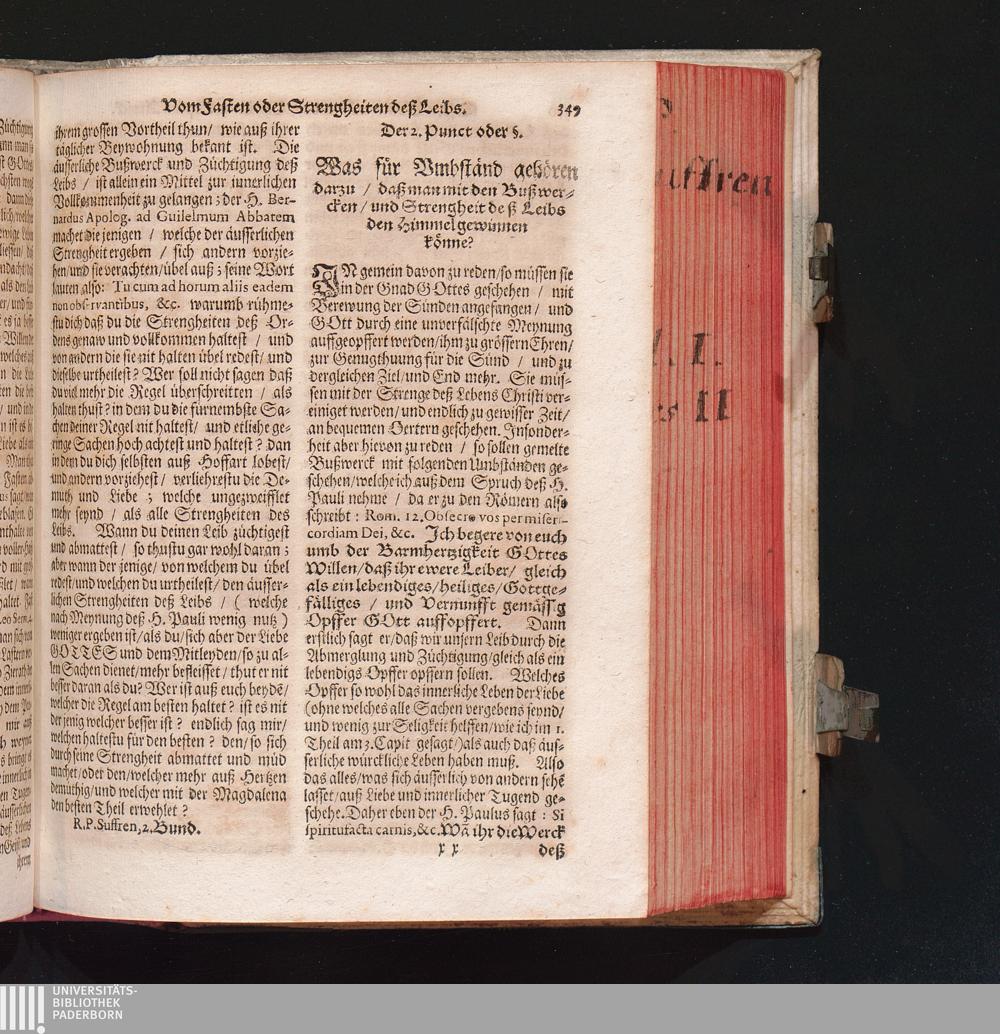 Vom Fasten oder Strengheiten deß Leibs. 349
ihrem grossen Vortheil thun/ wie auß ihrer
täglicher Beywohnung bekant ist. Die
äusserliche Bußwerck und Züchtigung deß
Leibs / ist allein ein Mittel zur innerlichen
Vollkommenheit zu gelangen; der H. Ber-
nardus Apolog. ad Guilelmum Abbatem
machet die jenigen / welche der äusserlichen
Strengheit ergeben / sich andern vorzie-
hen/ und sie verachten/ übel auß; seine Wort
lauten also: Tu cum ad horum aliis eadem
non observantibus, &c. warumb rühme-
stu dich daß du die Strengheiten deß Or-
dens genaw und vollkommen haltest / und
von andern die sie nit halten übel redest/ und
dieselbe urtheilest? Wer soll nicht sagen daß
du viel mehr die Regel überschreitten / als
halten thust? in dem du die fürnembste Sa-
chen deiner Regel nit haltest/ und etliche ge-
ringe Sachen hoch achtest und haltest? dan
in dem du dich selbsten auß Hoffart lobest/
und andern vorziehest/ verliehrestu die De-
muth und Liebe; welche ungezweifflet
mehr seynd / als alle Strengheiten des
Leibs. Wann du deinen Leib züchtigest
und abmattest / so thustu gar wohl daran;
aber wann der jenige/ von welchem du übel
redest/und welchen du urtheilest/ den äusser-
lichen Strengheiten deß Leibs / ( welche
nach Meynung deß H. Pauli wenig nutz )
weniger ergeben ist/als du/sich aber der Liebe
GOTTES und dem Mitleyden/so zu al-
len Sachen dienet/mehr befleisset / thut er nit
besser daran als du? Wer ist auß euch beyde/
welcher die Regel am besten haltet? ist es nit
der jenig welcher besser ist? endlich sag mir/
welchen haltestu für den besten? den/ so sich
durch seine Strengheit abmattet und müd
machet/oder den/welcher mehr auß Hertzen
demüthig/und welcher mit der Magdalena
den besten Theil erwehlet?
R.P. Suffren, 2. Bund.
Der 2. Punct oder §.
Was für Umbständ gehören
darzu / daß man mit den Bußwer-
cken / und Strengheit deß Leibs
den Himmel gewinnen
könne?
IN gemein davon zu reden/so müssen sie
in der Gnad GOttes geschehen / mit
Berewung der Sünden angefangen / und
GOtt durch eine unverfälschte Meynung
auffgeopffert werden/ihm zu grössern Ehren/
zur Genugthuung für die Sünd / und zu
dergleichen Ziel/und End mehr. Sie müs-
sen mit der Strenge deß Lebens Christi ver-
einiget werden/ und endlich zu gewisser Zeit/
an bequemen Oertern geschehen. Insonder-
heit aber hievon zu reden / so sollen gemelte
Bußwerck mit folgenden Umbständen ge-
schehen/welche ich auß dem Spruch deß H.
Pauli nehme / da er zu den Römern also
schreibt: Rom. 12. Obsecro vos per miseri-
cordiam Dei, &c. Ich begere von euch
umb der Barmhertzigkeit GOttes
Willen/daß ihr ewere Leiber/ gleich
als ein lebendiges/heiliges/Gottge-
fälliges / und Vernunfft gemässig
Opffer GOtt auffopffert. Dann
erstlich sagt er/daß wir unsern Leib durch die
Abmerglung und Züchtigung/gleich als ein
lebendigs Opffer opffern sollen. Welches
Opffer so wohl das innerliche Leben der Liebe
(ohne welches alle Sachen vergebens seynd/
und wenig zur Seligkeit helffen/wie ich im 1.
Theil am 3. Capit gesagt/)als auch daß äus-
serliche würckliche Leben haben muß. Also
das alles/was sich äusserlich von andern sehē
lasset/auß Liebe und innerlicher Tugend ge-
schehe. Daher eben der H. Paulus sagt: Si
spiritu facta carnis, &c. Wā ihr die Werck
x x deß
uffren
I.
II
UNIVERSITÄTS-
BIBLIOTHEK
PADERBORN